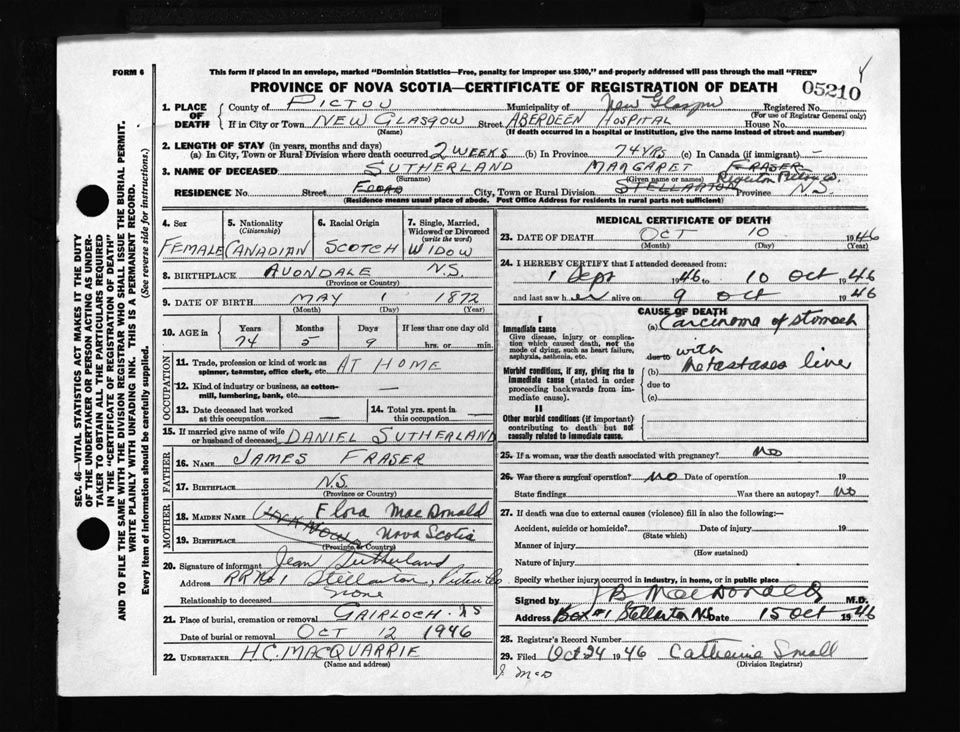 FORM 6
This form if placed in an envelope, marked "Dominion Statistics—Free, penalty for improper use $300," and properly addressed will pass through the mail "FREE"
PROVINCE OF NOVA SCOTIA—CERTIFICATE OF REGISTRATION OF DEATH
05210
1. PLACE OF DEATH
County of PICTOU Municipality of New Glasgow Registered No.
(For use of Registrar General only)
If in City or Town NEW GLASGOW Street ABERDEEN HOSPITAL House No.
(Name) (If death occurred in a hospital or institution, give the name instead of street and number)
2. LENGTH OF STAY (in years, months and days)
(a) In City, Town or Rural Division where death occurred 2 WEEKS (b) In Province 74 YRS (c) In Canada (if immigrant) —
3. NAME OF DECEASED SUTHERLAND MARGARET FRASER
(Surname) (Given name or names)
RESIDENCE No. Street City, Town or Rural Division STELLARTON Province N.S.
(Residence means usual place of abode. Post Office Address for residents in rural parts not sufficient)
4. Sex FEMALE
5. Nationality (Citizenship) CANADIAN
6. Racial Origin SCOTCH
7. Single, Married, Widowed or Divorced (write the word) WIDOW
8. BIRTHPLACE AVONDALE N.S.
(Province or Country)
9. DATE OF BIRTH MAY 1 1872
(Month) (Day) (Year)
10. AGE in Years Months Days If less than one day old
74 5 9 hrs. or min.
11. Trade, profession or kind of work as spinner, teamster, office clerk, etc. AT HOME
12. Kind of industry or business, as cotton-mill, lumbering, bank, etc. —
13. Date deceased last worked at this occupation —
14. Total yrs. spent in this occupation —
15. If married give name of wife or husband of deceased DANIEL SUTHERLAND
FATHER
16. NAME JAMES FRASER
17. BIRTHPLACE N.S.
(Province or Country)
MOTHER
18. MAIDEN NAME Flora MacDonald
UNKNOWN
19. BIRTHPLACE Nova Scotia
(Province or Country)
20. Signature of informant Jean Sutherland
Address RR No 1 Stellarton, Pictou Co
Relationship to deceased None
21. Place of burial, cremation or removal GAIRLOCH NS
Date of burial or removal OCT 12 1946
22. UNDERTAKER H.C. MACQUARRIE
(Name and address)
MEDICAL CERTIFICATE OF DEATH
23. DATE OF DEATH OCT 10 1946
(Month) (Day) (Year)
24. I HEREBY CERTIFY that I attended deceased from:
1 Sept 1946 to 10 Oct 1946
and last saw her alive on 9 Oct 1946
CAUSE OF DEATH
I
Immediate cause
Give disease, injury or complication which caused death, not the mode of dying, such as heart failure, asphyxia, asthenia, etc.
(a) Carcinoma of stomach
due to with
Morbid conditions, if any, giving rise to immediate cause (stated in order proceeding backwards from immediate cause).
(b) Metastases liver
due to
(c)
II
Other morbid conditions (if important) contributing to death but not causally related to immediate cause.
25. If a woman, was the death associated with pregnancy? no
26. Was there a surgical operation? no Date of operation 19
State findings Was there an autopsy? no
27. If death was due to external causes (violence) fill in also the following:—
Accident, suicide or homicide? Date of injury 19
(State which)
Manner of injury
(How sustained)
Nature of injury
Specify whether injury occurred in industry, in home, or in public place
Signed by J B MacDonald M.D.
Address Box #1 Stellarton N.S. Date 15 Oct 1946
28. Registrar's Record Number
29. Filed Oct 24 1946 Catherine Small
(Division Registrar)
J. McD
SEC. 46—VITAL STATISTICS ACT MAKES IT THE DUTY
OF THE UNDERTAKER OR PERSON ACTING AS UNDER-
TAKER TO OBTAIN ALL THE PARTICULARS REQUIRED
IN THE "CERTIFICATE OF REGISTRATION OF DEATH"
AND TO FILE THE SAME WITH THE DIVISION REGISTRAR WHO SHALL ISSUE THE BURIAL PERMIT.
WRITE PLAINLY WITH UNFADING INK. THIS IS A PERMANENT RECORD.
Every item of information should be carefully supplied. (See reverse side for instructions.)